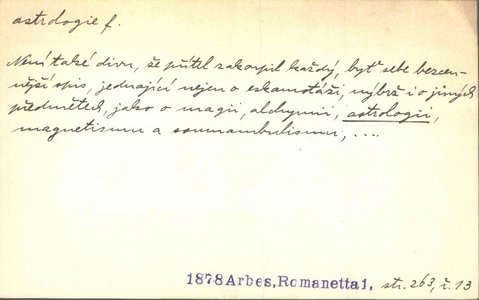 astrologie f.
Není také divu, že přítel zakoupil každý, byť sebe bezcen-
nější spis, jednající nejen o eskamotáži, nýbrž i o jiných
předmětech, jako o magii, alchymii, astrologii,
magnetismu a somnambulismu, ....
1878 Arbes, Romanetta 1, str. 263, ř. 13